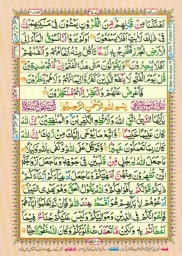 اَهْلَكْنَا مِنْ قَبْلِهِمْ مِّنَ الْقُرُوْنِ يَمْشُوْنَ فِيْ مَسٰكِنِهِمْ اِنَّ
فِيْ ذٰلِكَ لَاٰيٰتٍ اَفَلَا يَسْمَعُوْنَ اَوَلَمْ يَرَوْا اَنَّا نَسُوْقُ الْمَآءَ اِلَى
الْاَرْضِ الْجُرُزِ فَنُخْرِجُ بِهٖ زَرْعًا تَاْكُلُ مِنْهُ اَنْعَامُهُمْ وَاَنْفُسُهُمْ
اَفَلَا يُبْصِرُوْنَ وَيَقُوْلُوْنَ مَتٰى هٰذَا الْفَتْحُ اِنْ كُنْتُمْ صٰدِقِيْنَ
قُلْ يَوْمَ الْفَتْحِ لَا يَنْفَعُ الَّذِيْنَ كَفَرُوْۤا اِيْمَانُهُمْ وَلَا هُمْ يُنْظَرُوْنَ
فَاَعْرِضْ عَنْهُمْ وَانْتَظِرْ اِنَّهُمْ مُّنْتَظِرُوْنَ
بِسْمِ اللّٰهِ الرَّحْمٰنِ الرَّحِيْمِ
يٰۤاَيُّهَا النَّبِيُّ اتَّقِ اللّٰهَ وَلَا تُطِعِ الْكٰفِرِيْنَ وَالْمُنٰفِقِيْنَ اِنَّ اللّٰهَ
كَانَ عَلِيْمًا حَكِيْمًا وَّاتَّبِعْ مَا يُوْحٰۤى اِلَيْكَ مِنْ رَّبِّكَ اِنَّ اللّٰهَ
كَانَ بِمَا تَعْمَلُوْنَ خَبِيْرًا وَّتَوَكَّلْ عَلَى اللّٰهِ وَكَفٰى بِاللّٰهِ وَكِيْلًا
مَا جَعَلَ اللّٰهُ لِرَجُلٍ مِّنْ قَلْبَيْنِ فِيْ جَوْفِهٖ وَمَا جَعَلَ اَزْوَاجَكُمُ
الّٰٓـِٔيْ تُظٰهِرُوْنَ مِنْهُنَّ اُمَّهٰتِكُمْ وَمَا جَعَلَ اَدْعِيَآءَكُمْ اَبْنَآءَكُمْ
ذٰلِكُمْ قَوْلُكُمْ بِاَفْوَاهِكُمْ وَاللّٰهُ يَقُوْلُ الْحَقَّ وَهُوَ يَهْدِي السَّبِيْلَ
اُدْعُوْهُمْ لِاٰبَآئِهِمْ هُوَ اَقْسَطُ عِنْدَ اللّٰهِ فَاِنْ لَّمْ تَعْلَمُوْۤا اٰبَآءَهُمْ
فَاِخْوَانُكُمْ فِي الدِّيْنِ وَمَوَالِيْكُمْ وَلَيْسَ عَلَيْكُمْ جُنَاحٌ فِيْمَاۤ
اَخْطَاْتُمْ بِهٖ وَلٰكِنْ مَّا تَعَمَّدَتْ قُلُوْبُكُمْ وَكَانَ اللّٰهُ غَفُوْرًا رَّحِيْمًا